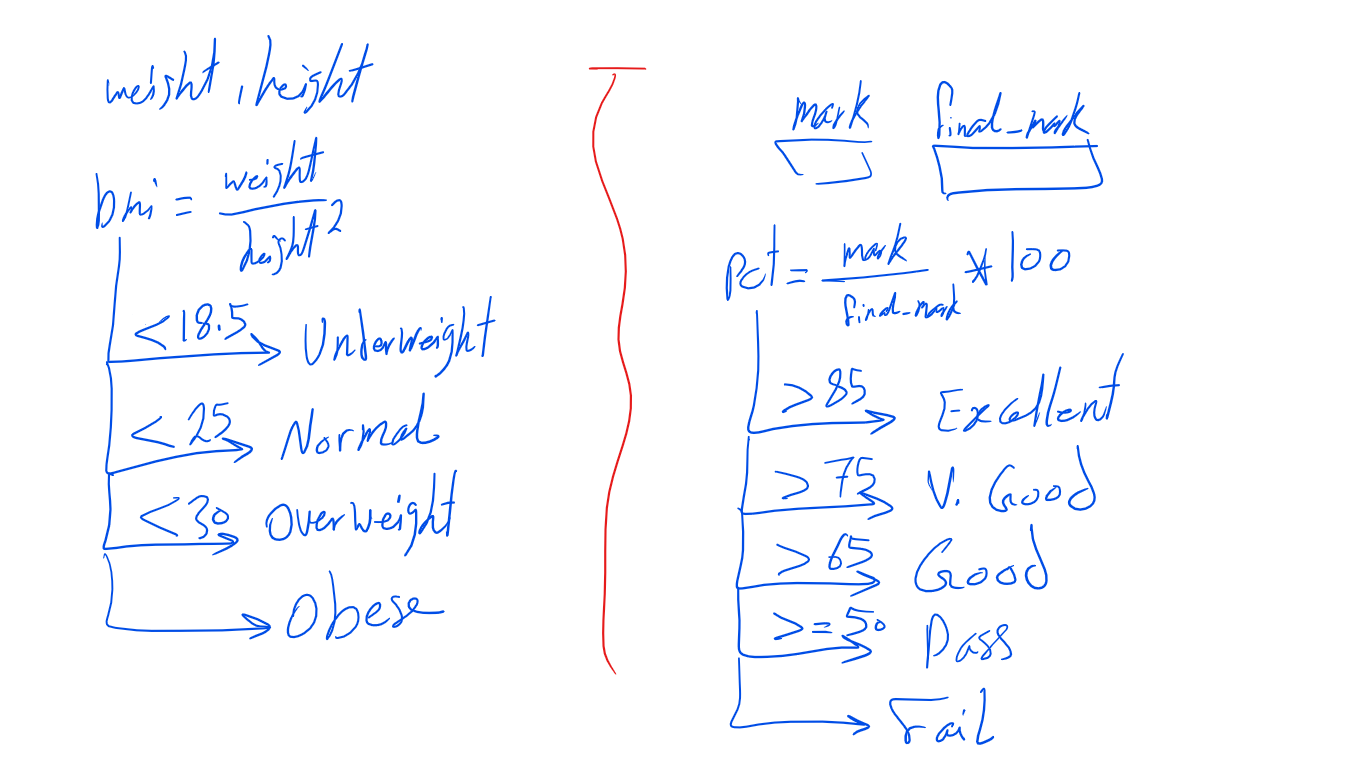 weight, height
bmi = weight / height²
< 18.5 Underweight
< 25 Normal
< 30 Overweight
Obese
mark final_mark
Pct = mark / final_mark * 100
> 85 Excellent
> 75 V. Good
> 65 Good
>= 50 Pass
Fail